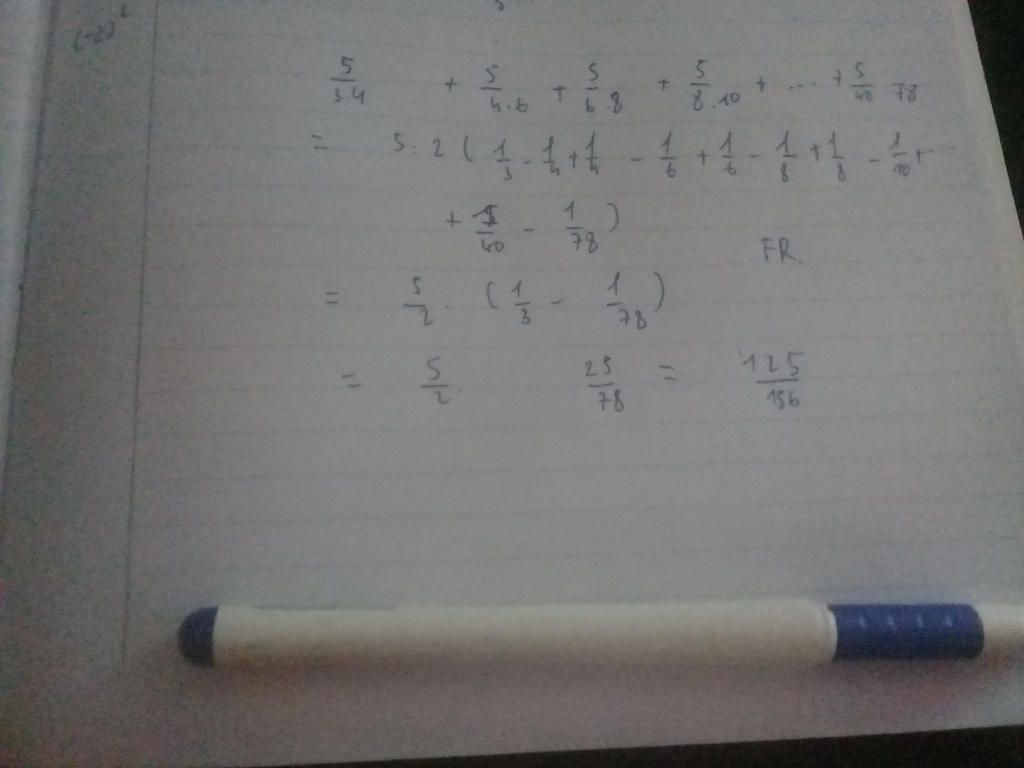 (-2)
5/3.4 + 5/4.6 + 5/6.8 + 5/8.10 + ... + 5/40 78
= 5:2 ( 1/3 - 1/4 + 1/4 - 1/6 + 1/6 - 1/8 + 1/8 - 1/10 + ...
+ 1/40 - 1/78 )
FR.
= 5/2 . ( 1/3 - 1/78 )
= 5/2 . 25/78 = 125/156